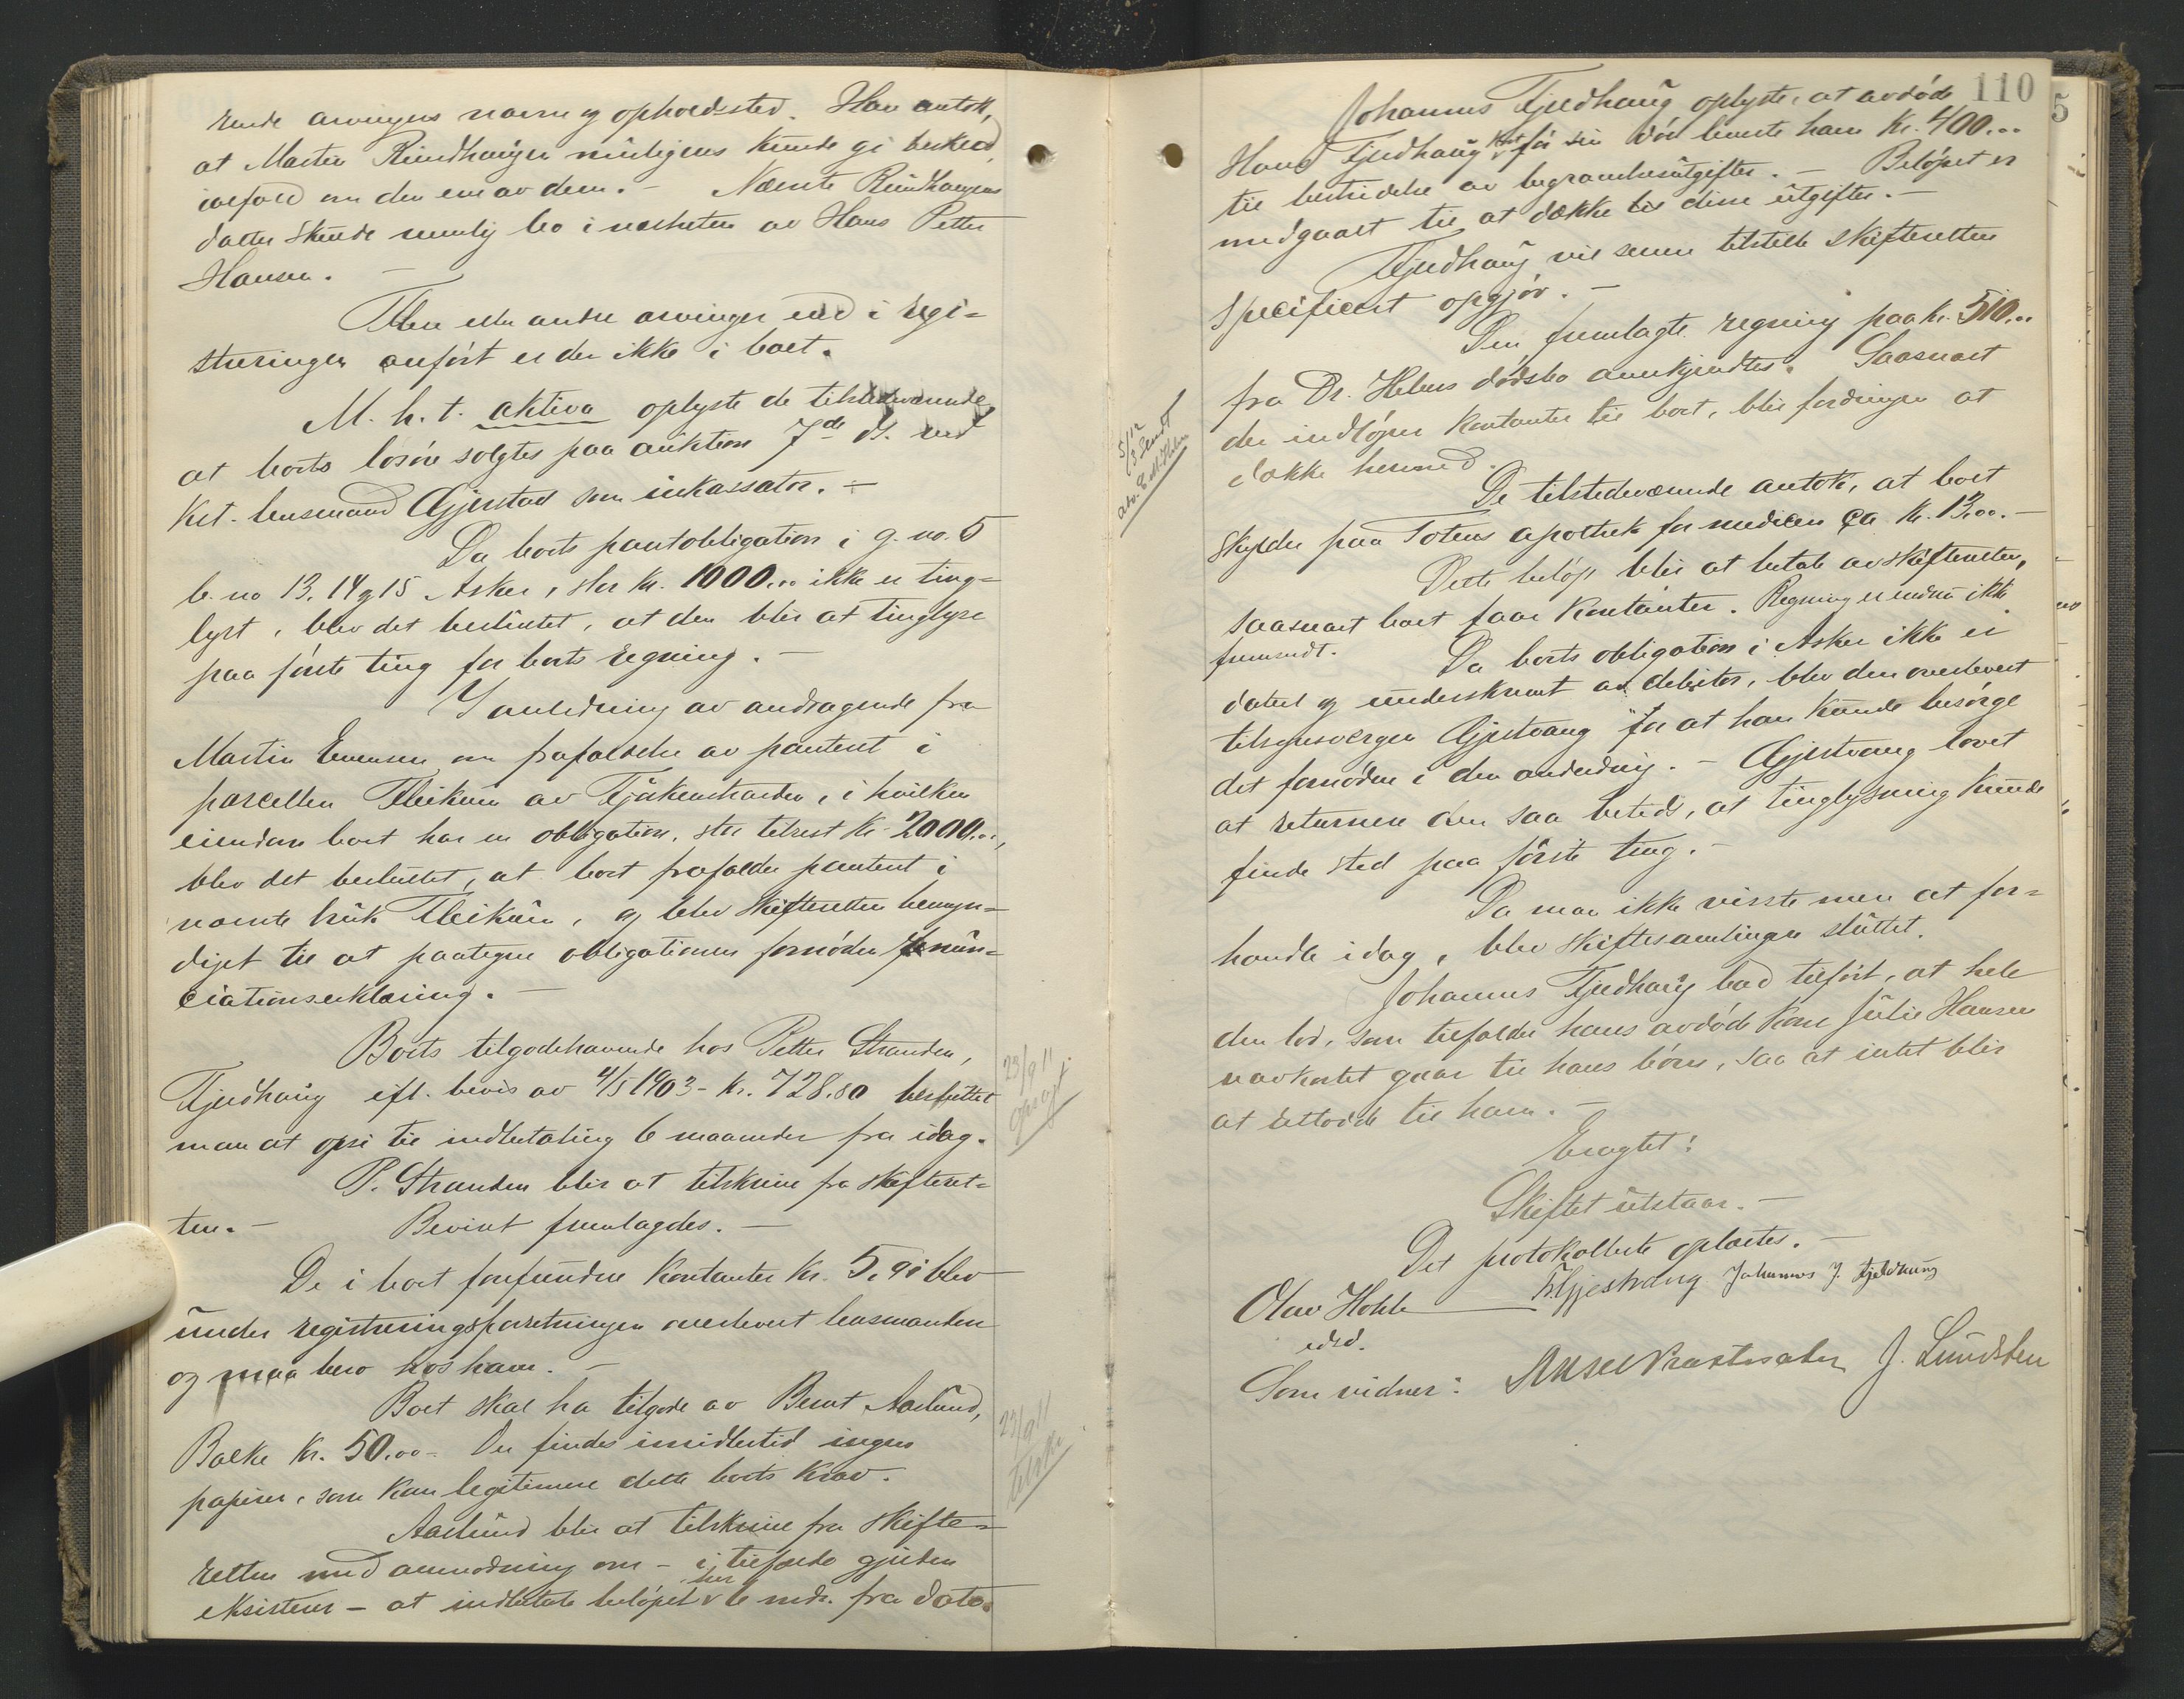 rende arvingers navn og opholdssted. Han antok,
at Martin Rundhaugen muligens kunde gi beskend,
ialfald om den ene av dem. – Nævnte Rundhaugens
datter skulde nemlig bo i nærheten av Hans Petter
Hansen. –
Flere eller andre arvinger end i regi=
streringen anført er der ikke i boet.
M. h. t. aktiva oplyste de tilstedeværende
at boets løsøre solgtes paa auktion 7de ds. ved
kst. lensmand Gjerstad som inkassator. –
Da boets pantobligation i g. no. 5
b. no 13, 14 og 15 Asker, stor kr. 1000.00 ikke er ting=
lyst, blev det besluttet, at den blir at tinglyse
paa første ting for boets regning. –
I anledning av andragende fra
Martin Evensen om frafaldelse av panteret i
parcellen Fleikum av Fjukenstranden, i hvilken
eiendom boet har en obligation, stor tilrest kr. 2000.00,
blev det besluttet, at boet frafalder panteret i
nævnte bruk Fleikum, og blev skifteretten bemyn=
diget til at paategne obligationen fornøden renun=
ciationserklæring. –
Boets tilgodehavende hos Petter Stranden,
Fjeldhaug ifl. bevis av 4/5 1903 – kr. 728.80 besluttet
man at opsi til indbetaling 6 maaneder fra idag.
P. Stranden blir at tilskrive fra skifteret=
ten. – Beviset fremlagdes. –
De i boet forefundne kontanter kr. 5.90 blev
under registreringsforretningen overlevert lensmanden
og maa bero hos ham. –
Boet skal ha tilgode av Bernt Aaslund,
Balke kr. 50.00 – Der findes imidlertid ingen
papirer, som kan legitimere dette boets krav.
Aaslund blir at tilskrive fra skifte=
retten med anmodning om – i tilfælde gjælden
eksisterer – at indbetale beløpet her 6 mdr. fra dato.
23/9 11
opsagt
23/9 11
tilskr.
110
Johannes Fjeldhaug oplyste, at avdøde
Hans Fjeldhaug kort før sin død levnte ham kr. 400.00
til bestridelse av begravelsesutgifter. – Beløpet er
medgaaet til at dække til disse utgifter. –
Fjeldhaug vil senere tilstille skifteretten
specificert opgjør. –
Den fremlagte regning paa kr. 510.00
fra Dr. Helms dødsbo anerkjendtes. Saasnart
der indløper kontanter til boet, blir fordringen at
dække herved.
5/12
13 sendt
De tilstedeværende antok, at boet
skylder paa Totens apothek for medicin ca kr. 13.00. –
Dette beløp blir at betale av skifteretten,
saasnart boet faar kontanter. Regning er endnu ikke
fremsendt. Da boets obligation i Asker ikke er
datert og underskrevet av debitor, blev den overlevert
tilsynsverge Gjestvang for at han kunde besørge
det fornødne i den anledning. – Gjestvang lovet
at returnere den saa betids, at tinglysning kunde
finde sted paa første ting. –
Da man ikke visste mere at for=
handle idag, blev skiftesamlingen sluttet.
Johannes Fjeldhaug bad tilført, at hele
den lod, som tilfalder hans avdøde kone Julie Hansen
uavkortet gaar til hans børn, saa at intet blir
at utlodde til ham. –
Eragtet:
Skiftet utstaar. –
Det protokollerte oplæstes. –
Olav Hohle Gjestvang Johannes J. Fjeldhaug
edsd.
Som vidner: J. Lundsten